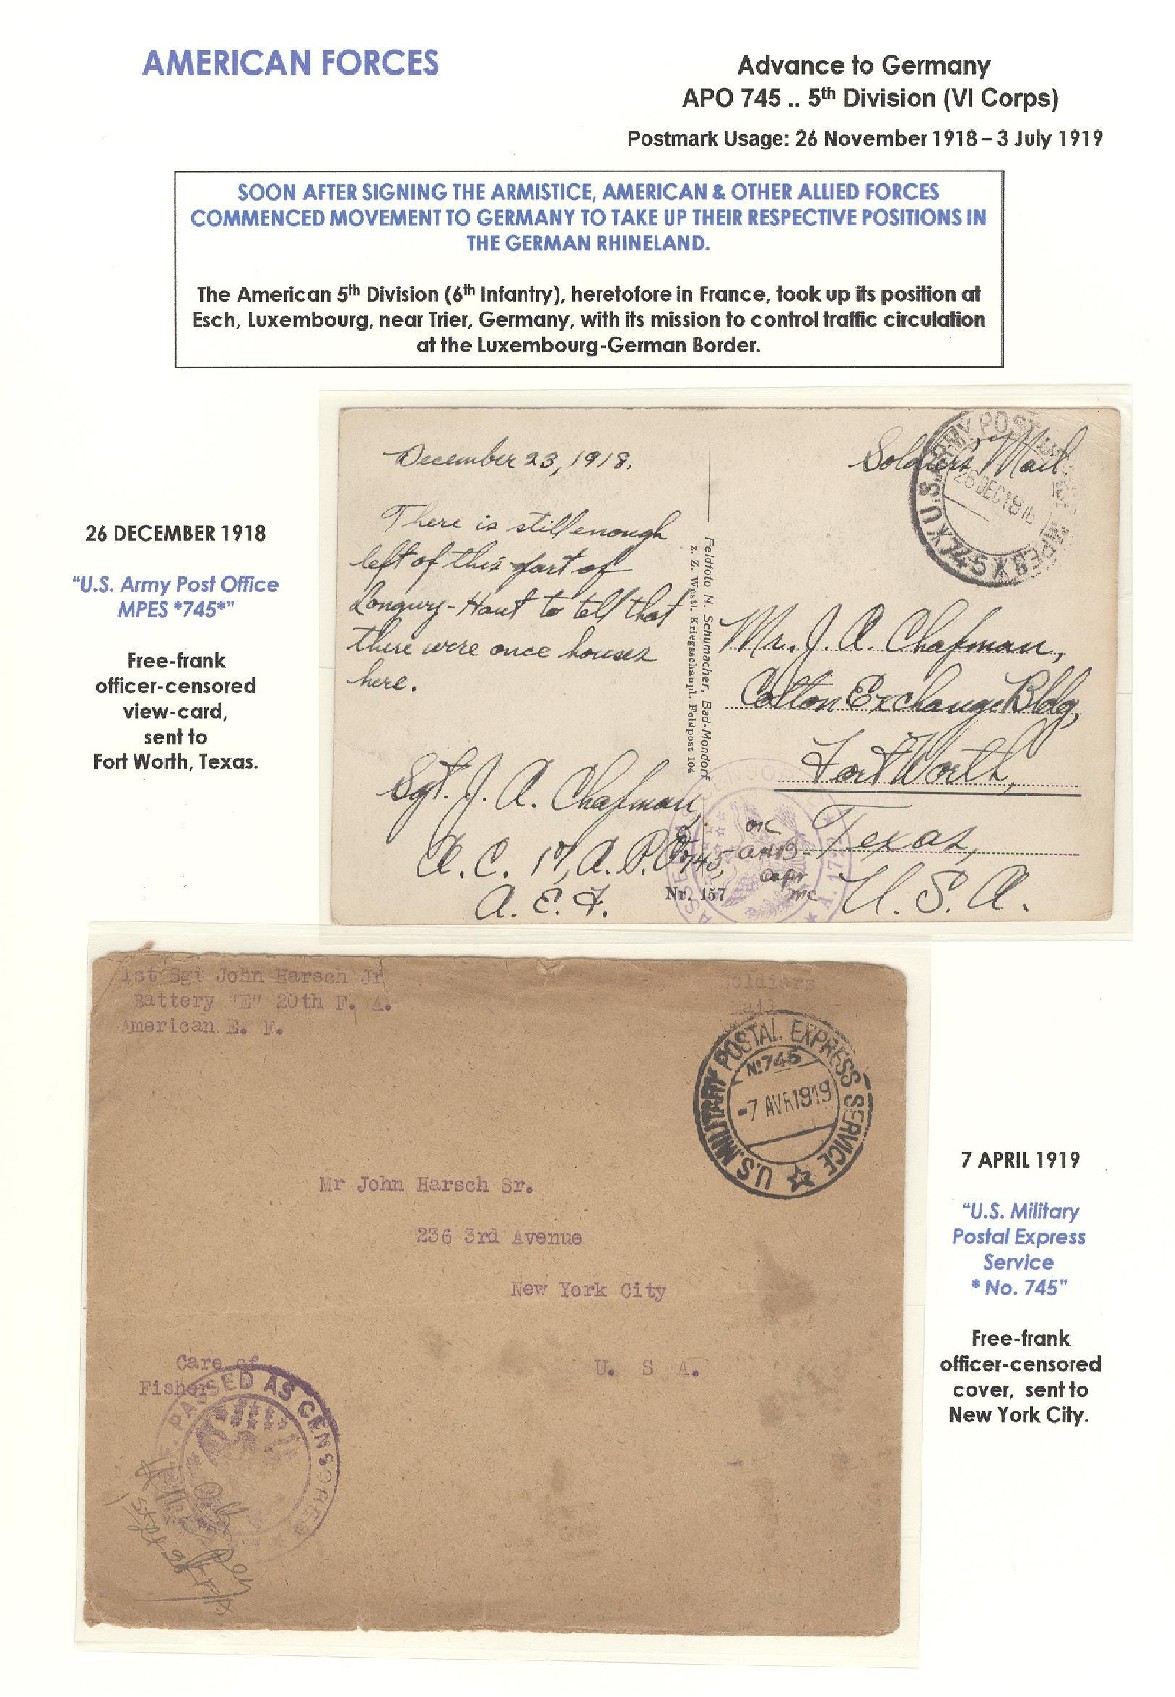 AMERICAN FORCES
Advance to Germany
APO 745 .. 5th Division (VI Corps)
Postmark Usage: 26 November 1918 – 3 July 1919
SOON AFTER SIGNING THE ARMISTICE, AMERICAN & OTHER ALLIED FORCES
COMMENCED MOVEMENT TO GERMANY TO TAKE UP THEIR RESPECTIVE POSITIONS IN
THE GERMAN RHINELAND.
The American 5th Division (6th Infantry), heretofore in France, took up its position at
Esch, Luxembourg, near Trier, Germany, with its mission to control traffic circulation
at the Luxembourg-German Border.
26 DECEMBER 1918
"U.S. Army Post Office
MPES *745*"
Free-frank
officer-censored
view-card,
sent to
Fort Worth, Texas.
December 23, 1918.
There is still enough
left of this part of
Longwy-Haut to tell that
there were once houses
here.
Sgt. J. A. Chapman
A. P. O. 745,
A. E. F.
Feldfoto N. Schumacher, Bad-Mondorf
z. Z. Westl. Kriegsschaupl. Feldpost 104
Nr. 157
Soldiers' Mail
U.S. ARMY POST
26 DEC 1918
MPES X 745 X
Mr. J. A. Chapman,
Cotton Exchange Bldg,
Fort Worth,
Texas,
U. S. A.
A. 1792
1st Sgt John Harsch Jr
Battery "E" 20th F. A.
American E. F.
Soldiers
Mail
U.S. MILITARY POSTAL EXPRESS SERVICE
No 745
-7 AVR 1919
Mr John Harsch Sr.
236 3rd Avenue
New York City
U. S A.
Care of
Fisher
PASSED AS CENSORED
7 APRIL 1919
"U.S. Military
Postal Express
Service
* No. 745"
Free-frank
officer-censored
cover, sent to
New York City.